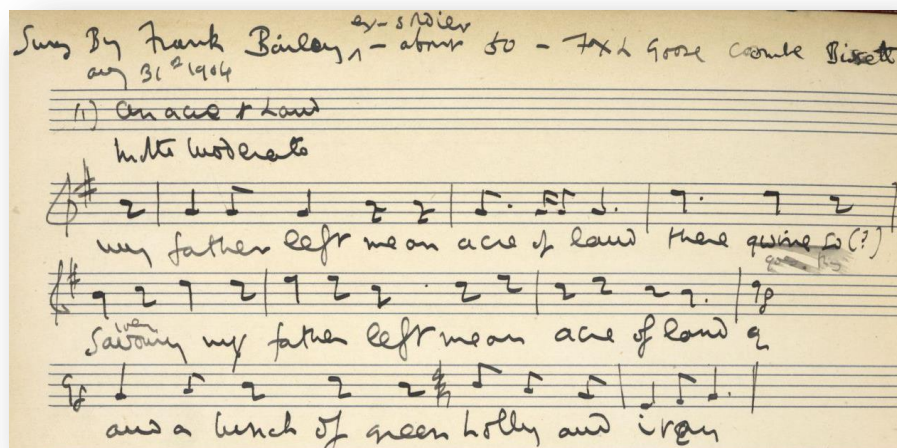 ex-soldier
Sung By Frank Bailey ^ - about 50 - Fox & Goose Coombe Bissett
Aug 31st 1904
(1) An acre of Land
Molto Moderato
my father left me an acre of land there gwine so (?)
goes
iven
Savoury my father left me an acre of land
and a bunch of green holly and ivory